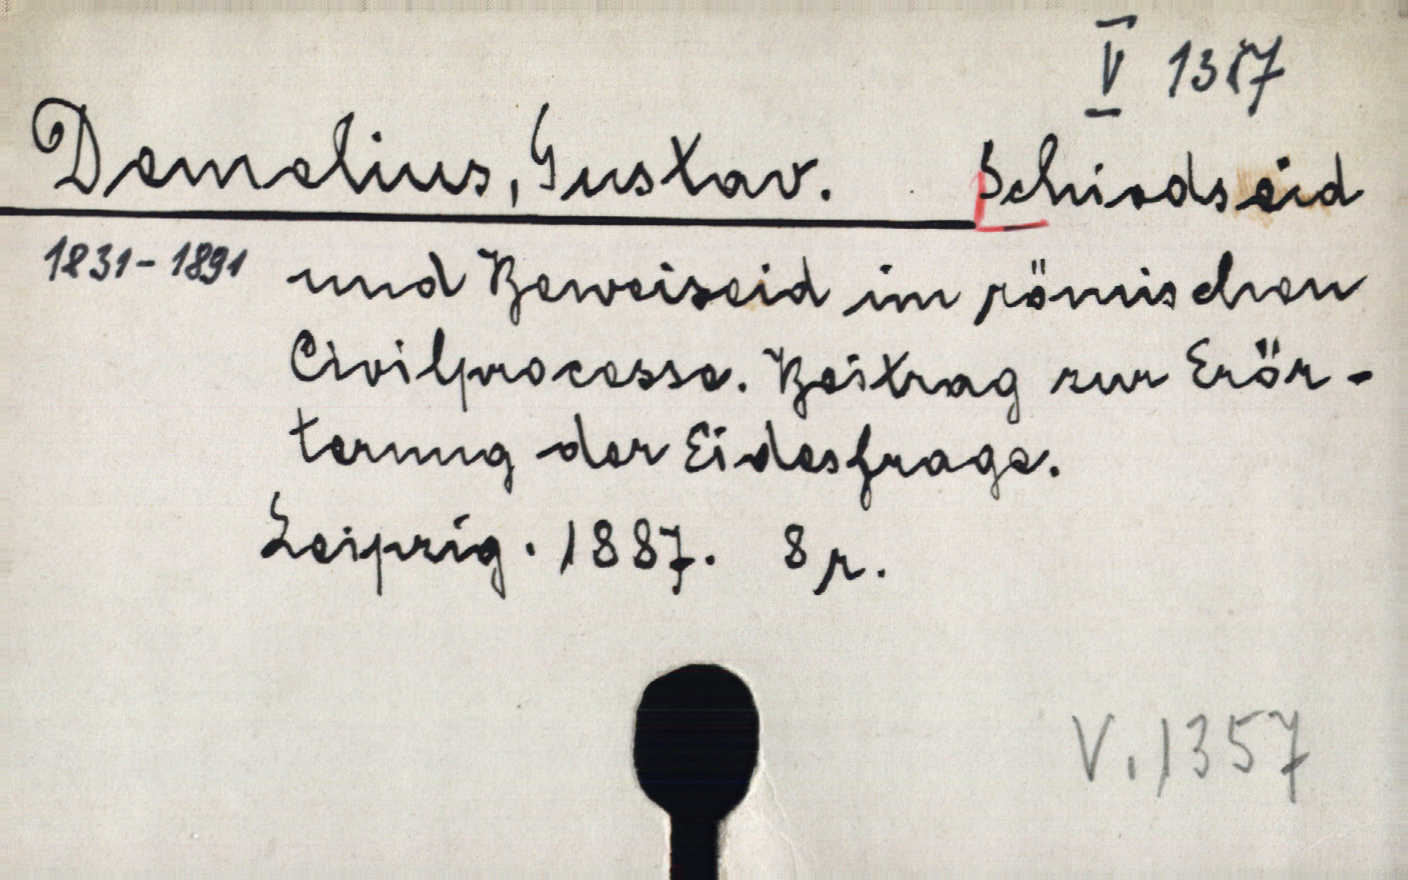 V 1357
Demelius, Gustav. Schiedseid
1831-1891 und Beweiseid im römischen
Civilprocesse. Beitrag zur Erör-
terung der Eidesfrage.
Leipzig. 1887. 8r.
V. 1357